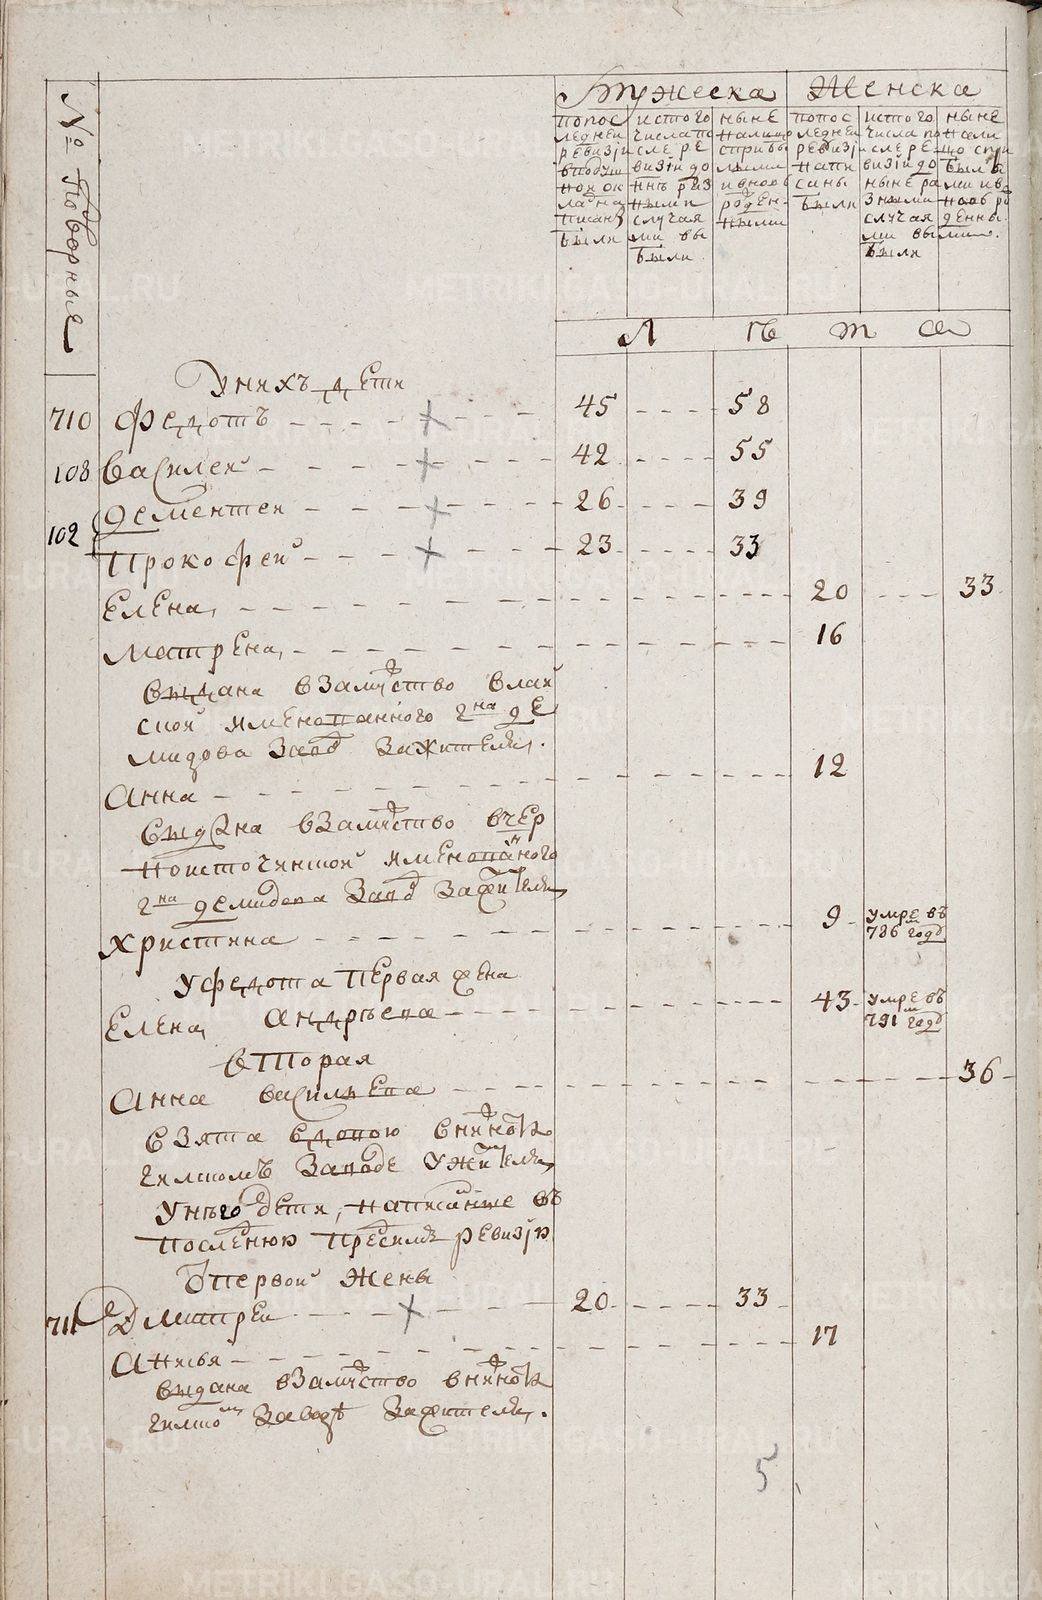 № Подворные
Мужеска
Женска
попос
ледней
ревизіи
вподуш
ном ок
ладна
писанъ
были
истого
числа по
сле ре
визіи до
ннѣ раз
ными
случая
ми вы
были
ныне
налицо
сприбы
лыми
и вновь
рожден
ными
попос
ледней
ревизіи
напи
саны
были
истого
числа по
сле ре
визіи до
ныне ра
зными
случая
ми вы
были
ныне
нали
цо спри
былы
ми и в
новь ро
жденны
ми
Л ѣ т а
Уних дети
710 Федотъ 45 58
108 Василей 42 55
102 Дементей 26 39
Прокофей 23 33
Елена 20 33
Матрена 16
выдана взамуство влай
ской имянованного гна де
мидова заводъ зажителя.
Анна 12
выдана взамуство вчер
ноисточинской имянованого
гна демидова заводъ зажителя
Христина 9 умре въ
786м годѣ
уФедота первая жена
Елена Андрѣева 43 умре въ
791м годѣ
вторая
Анна васильева 36
взята вдовою внижнота
гилскомъ заводе ужителя
унего дети, написанные въ
последнюю пред симъ ревизію
Отпервой жены
711 Дмитрей 20 33
Анисья 17
выдана взамуство внижнота
гилском заводѣ зажителя.
5
METRIKI.GASO-URAL.RU